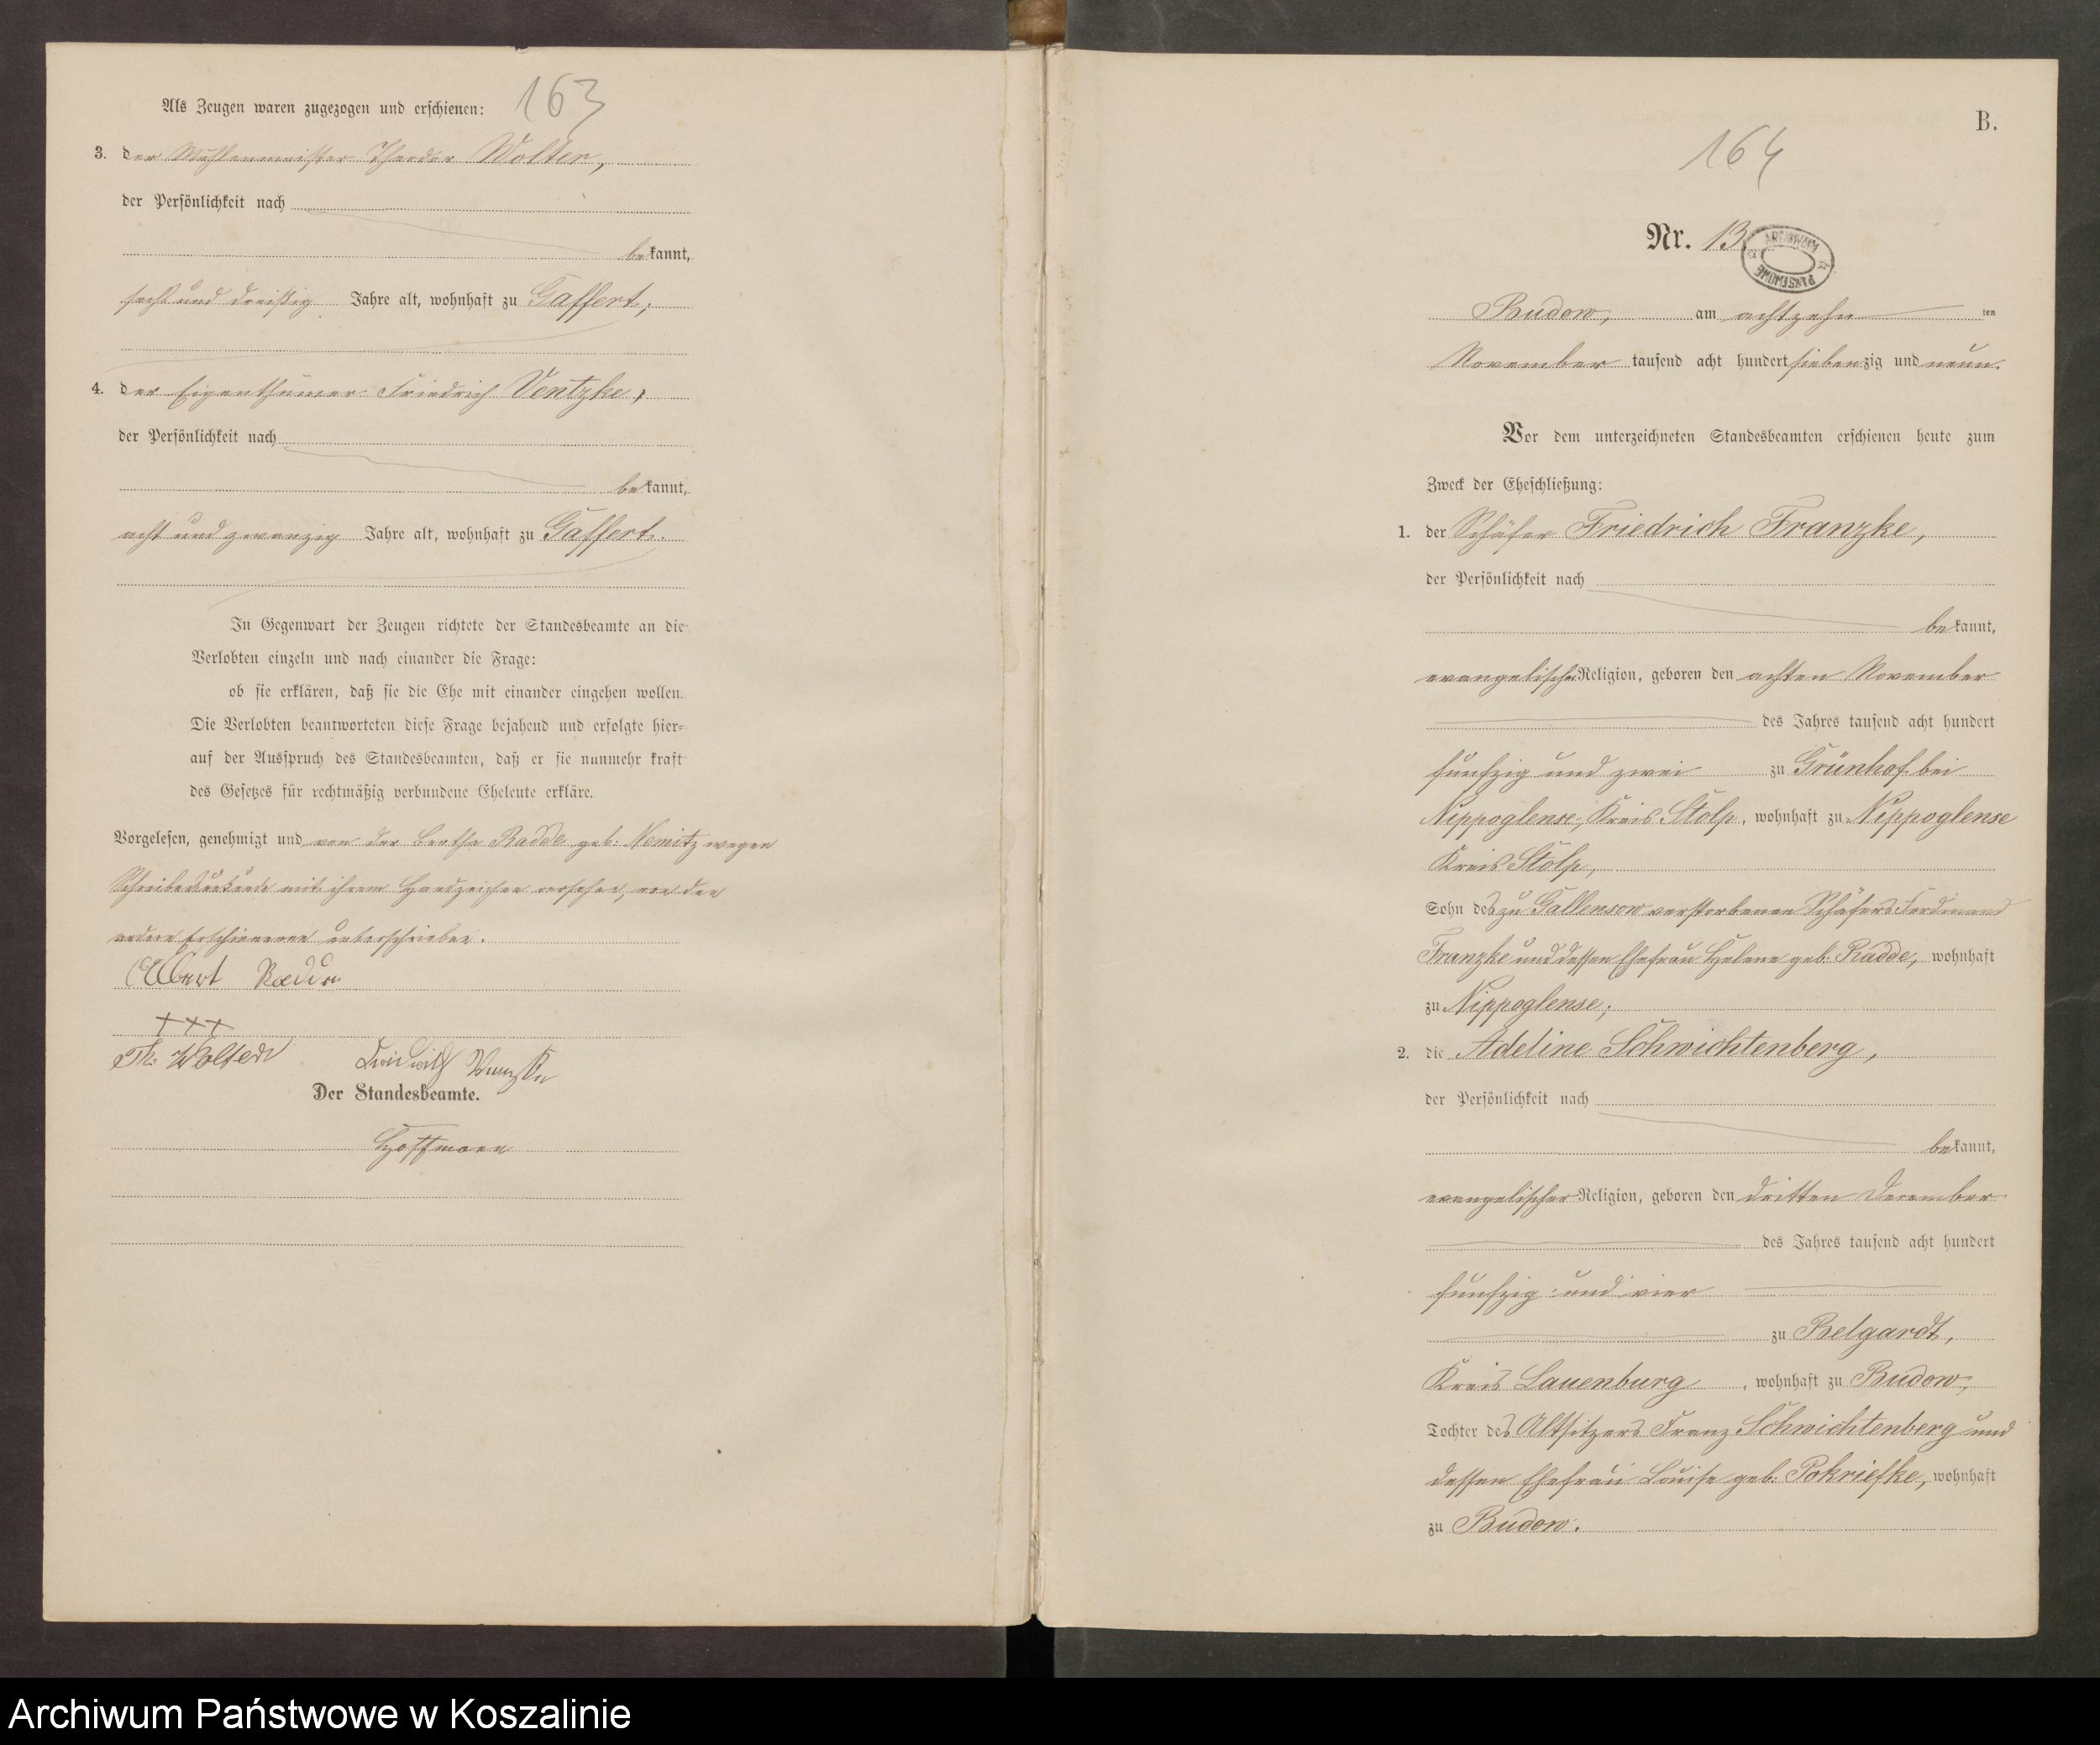 163
Als Zeugen waren zugezogen und erschienen:
3. der Mühlenmeister Theodor Wolter,
der Persönlichkeit nach
bekannt,
sechs und dreißig Jahre alt, wohnhaft zu Gaffert;
4. der Eigenthümer Friedrich Ventzke,
der Persönlichkeit nach
bekannt,
acht und zwanzig Jahre alt, wohnhaft zu Gaffert.
In Gegenwart der Zeugen richtete der Standesbeamte an die
Verlobten einzeln und nach einander die Frage:
ob sie erklären, daß sie die Ehe mit einander eingehen wollen.
Die Verlobten beantworteten diese Frage bejahend und erfolgte hier-
auf der Ausspruch des Standesbeamten, daß er sie nunmehr kraft
des Gesetzes für rechtmäßig verbundene Eheleute erkläre.
Vorgelesen, genehmigt und von der Bertha Radde geb. Nemitz wegen
Schreibensunkunde mit ihrem Handzeichen versehen, von den
andern Erschienenen unterschrieben.
Albert Radde
+++
Th. Wolter Friedrich Venzke
Der Standesbeamte.
Hoffmann
B.
164
Nr. 13.
ARCHIWUM PAŃSTWOWE
Budow, am achtzehn ten
November tausend acht hundert siebenzig und neun.
Vor dem unterzeichneten Standesbeamten erschienen heute zum
Zweck der Eheschließung:
1. der Schäfer Friedrich Franzke,
der Persönlichkeit nach
bekannt,
evangelischer Religion, geboren den achten November
des Jahres tausend acht hundert
funfzig und zwei zu Grünhof bei
Nippoglense, Kreis Stolp, wohnhaft zu Nippoglense
Kreis Stolp,
Sohn des zu Gallensow verstorbenen Schäfers Ferdinand
Franzke und dessen Ehefrau Helene geb. Radde, wohnhaft
zu Nippoglense;
2. die Adeline Schwichtenberg,
der Persönlichkeit nach
bekannt,
evangelischer Religion, geboren den dritten December
des Jahres tausend acht hundert
funfzig und vier
zu Belgardt,
Kreis Lauenburg, wohnhaft zu Budow,
Tochter des Altsitzers Franz Schwichtenberg und
dessen Ehefrau Louise geb. Pokriefke, wohnhaft
zu Budow.
Archiwum Państwowe w Koszalinie